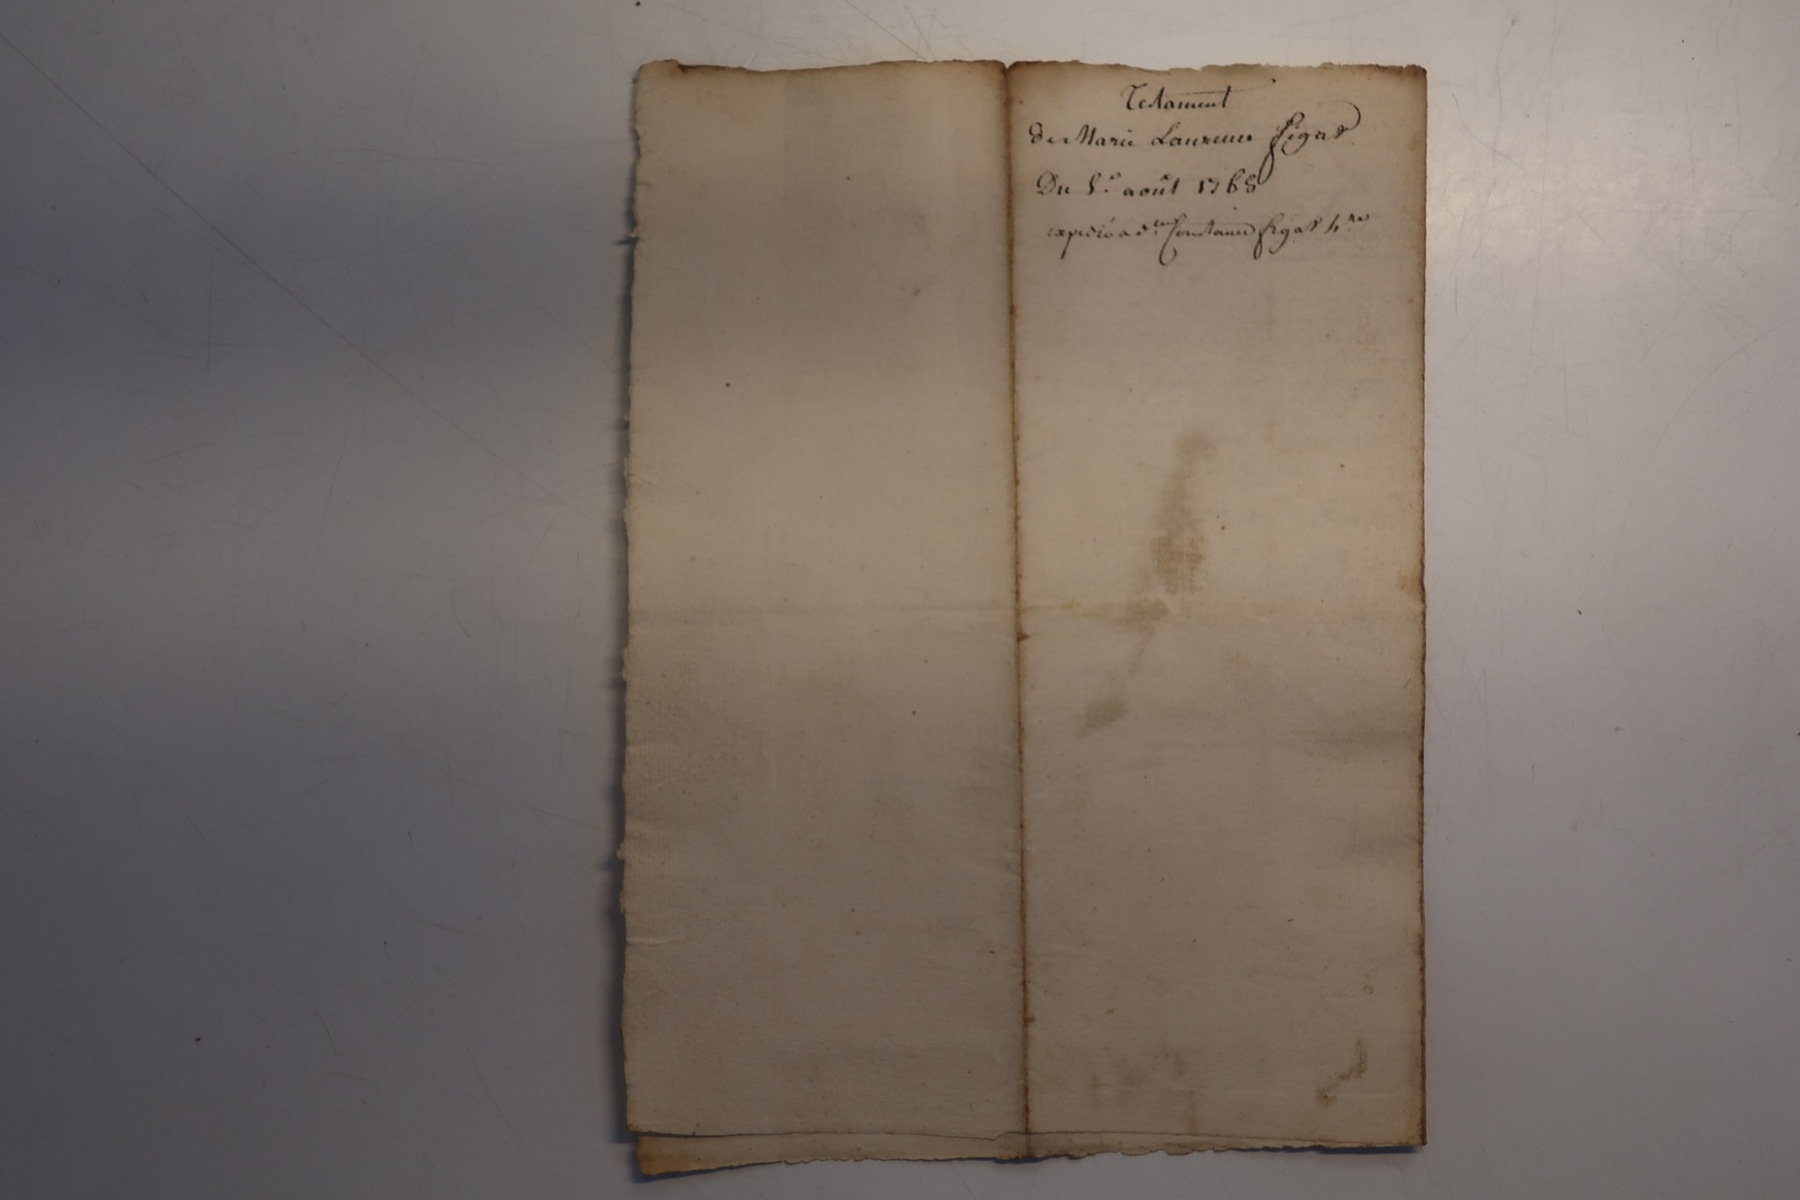 Testament
de Marie Laurence figat
Du 5.e août 1765
expedié a d.lle Constance figat h.re